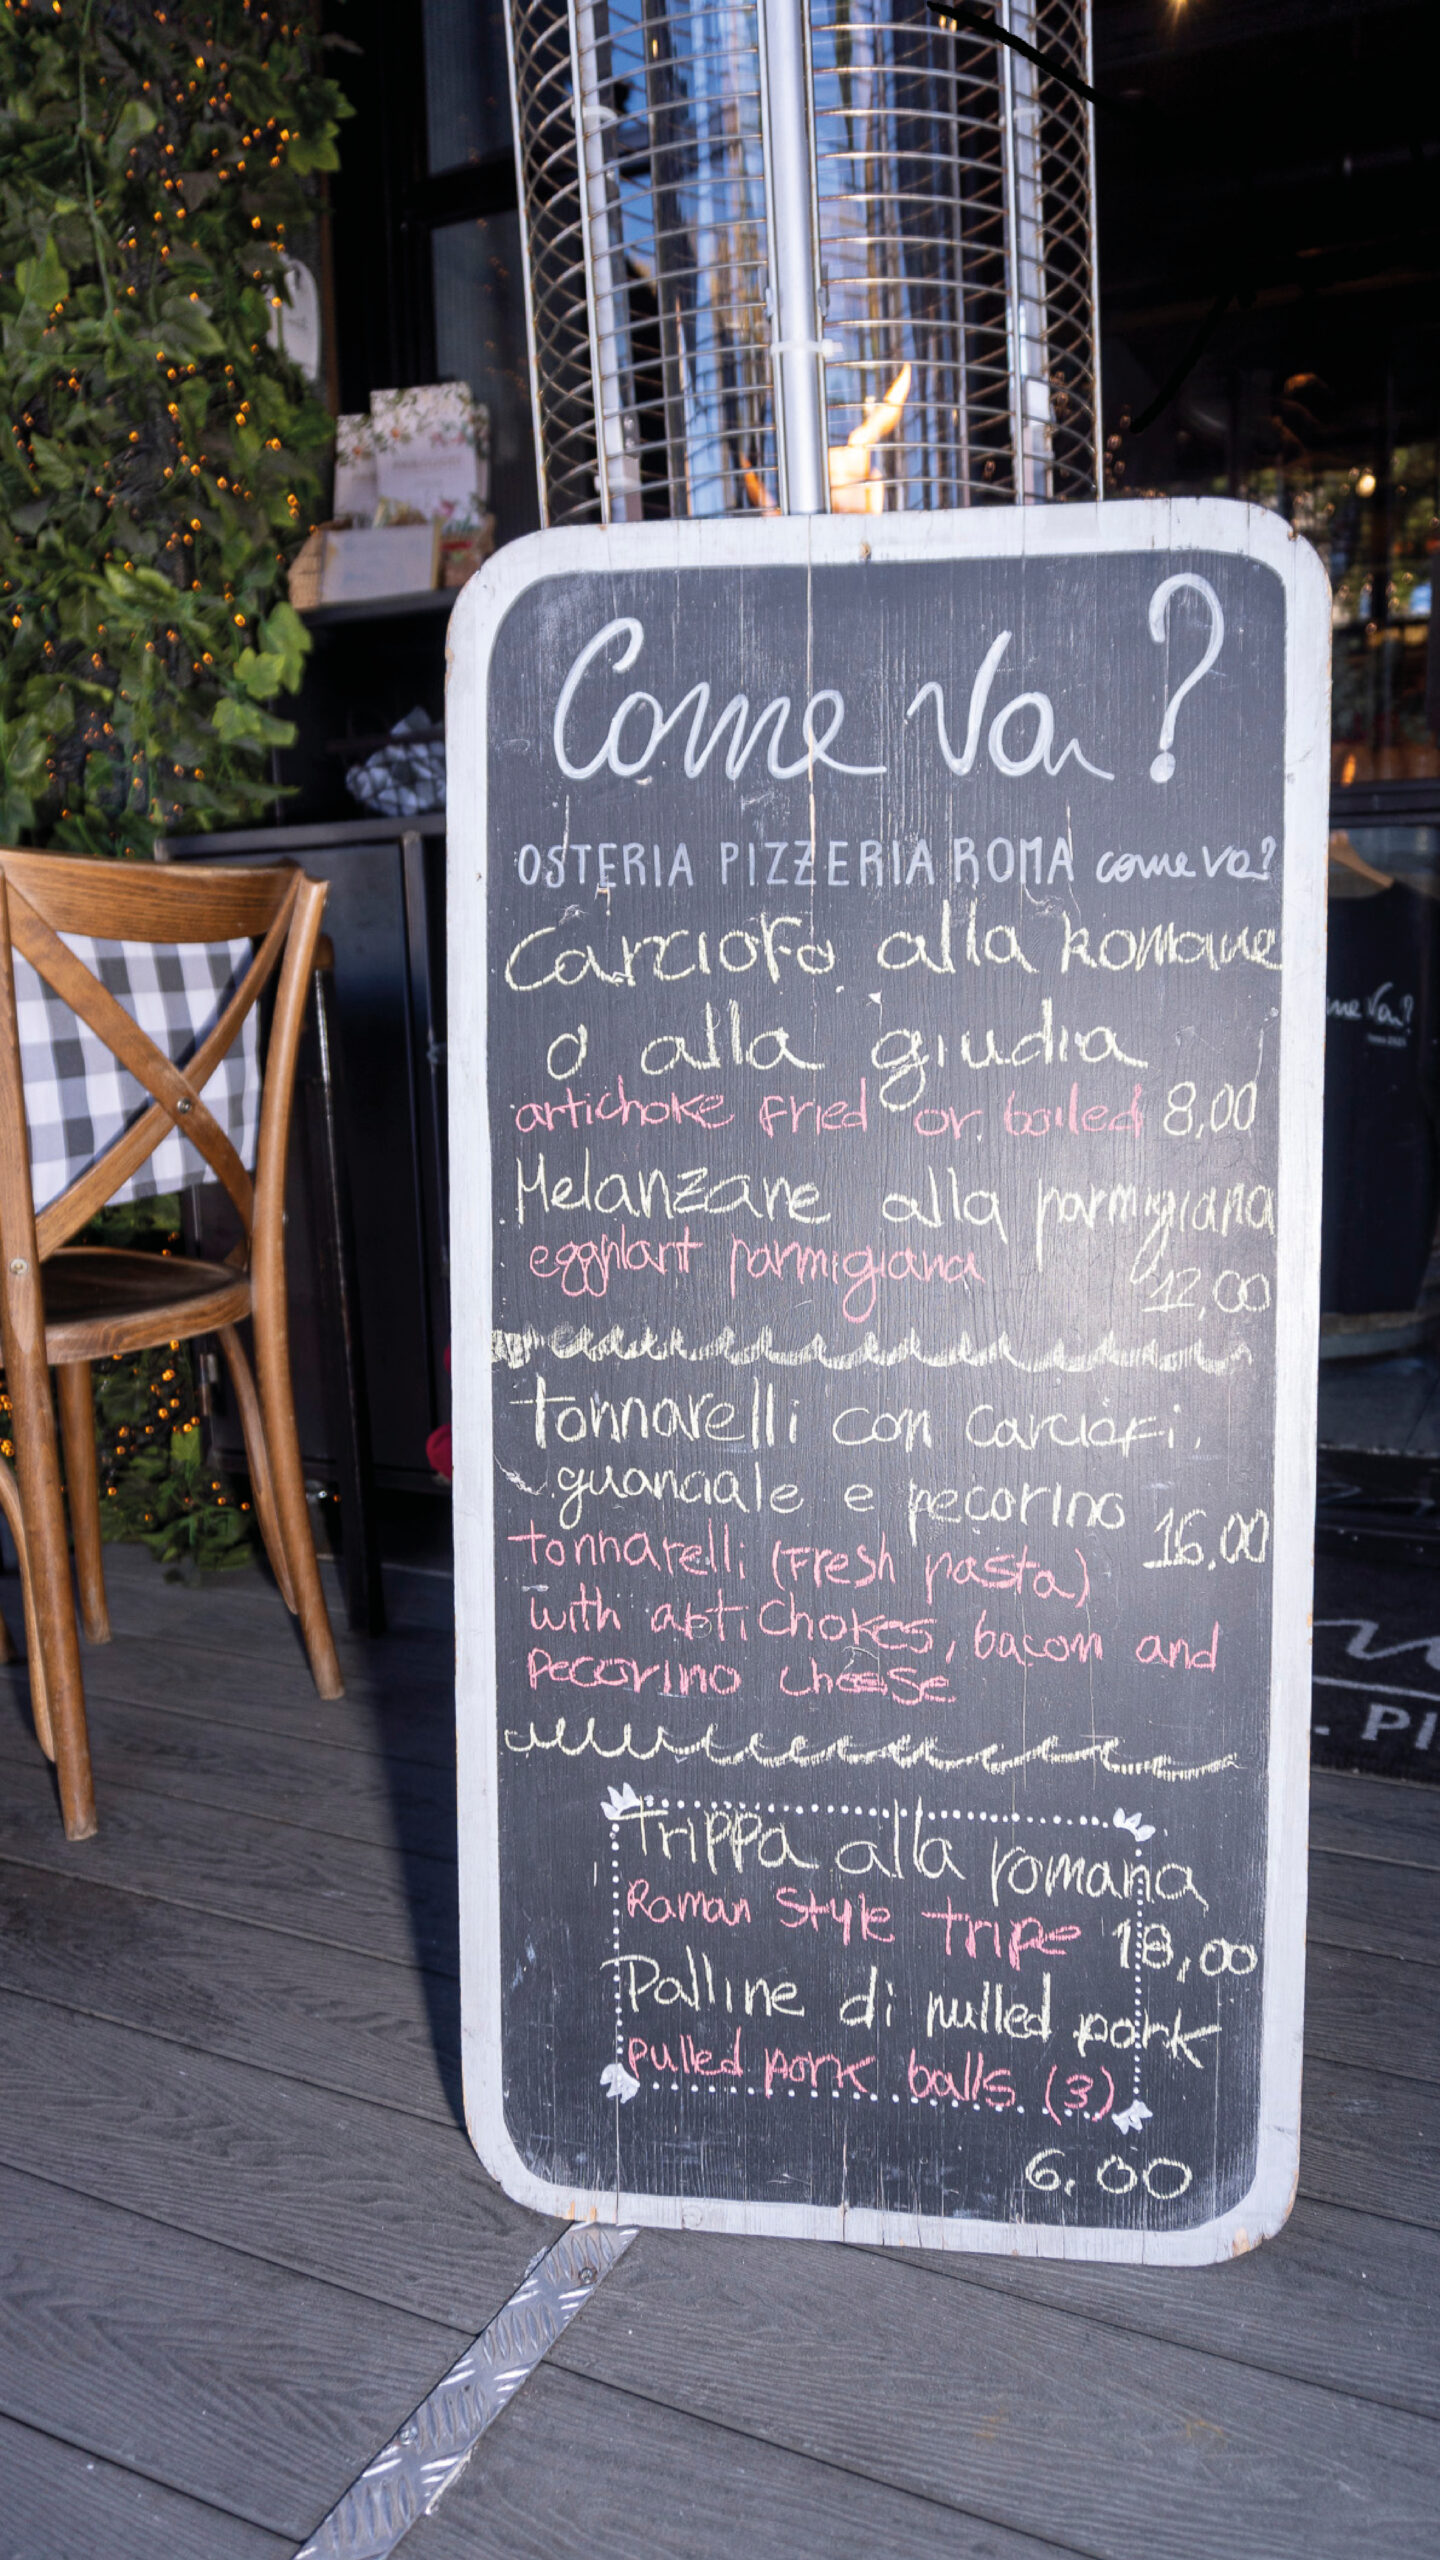 Come Va?
OSTERIA PIZZERIA ROMA come va?
Carciofo alla Romana
o alla giudia
artichoke fried or boiled 8,00
Melanzane alla parmigiana
eggplant parmigiana
12,00
tonnarelli con carciofi,
guanciale e pecorino
16,00
tonnarelli (Fresh pasta)
with artichokes, bacon and
pecorino cheese
Trippa alla romana
Roman Style tripe 18,00
Palline di pulled pork
pulled pork balls (3)
6,00
me Va?
. PI